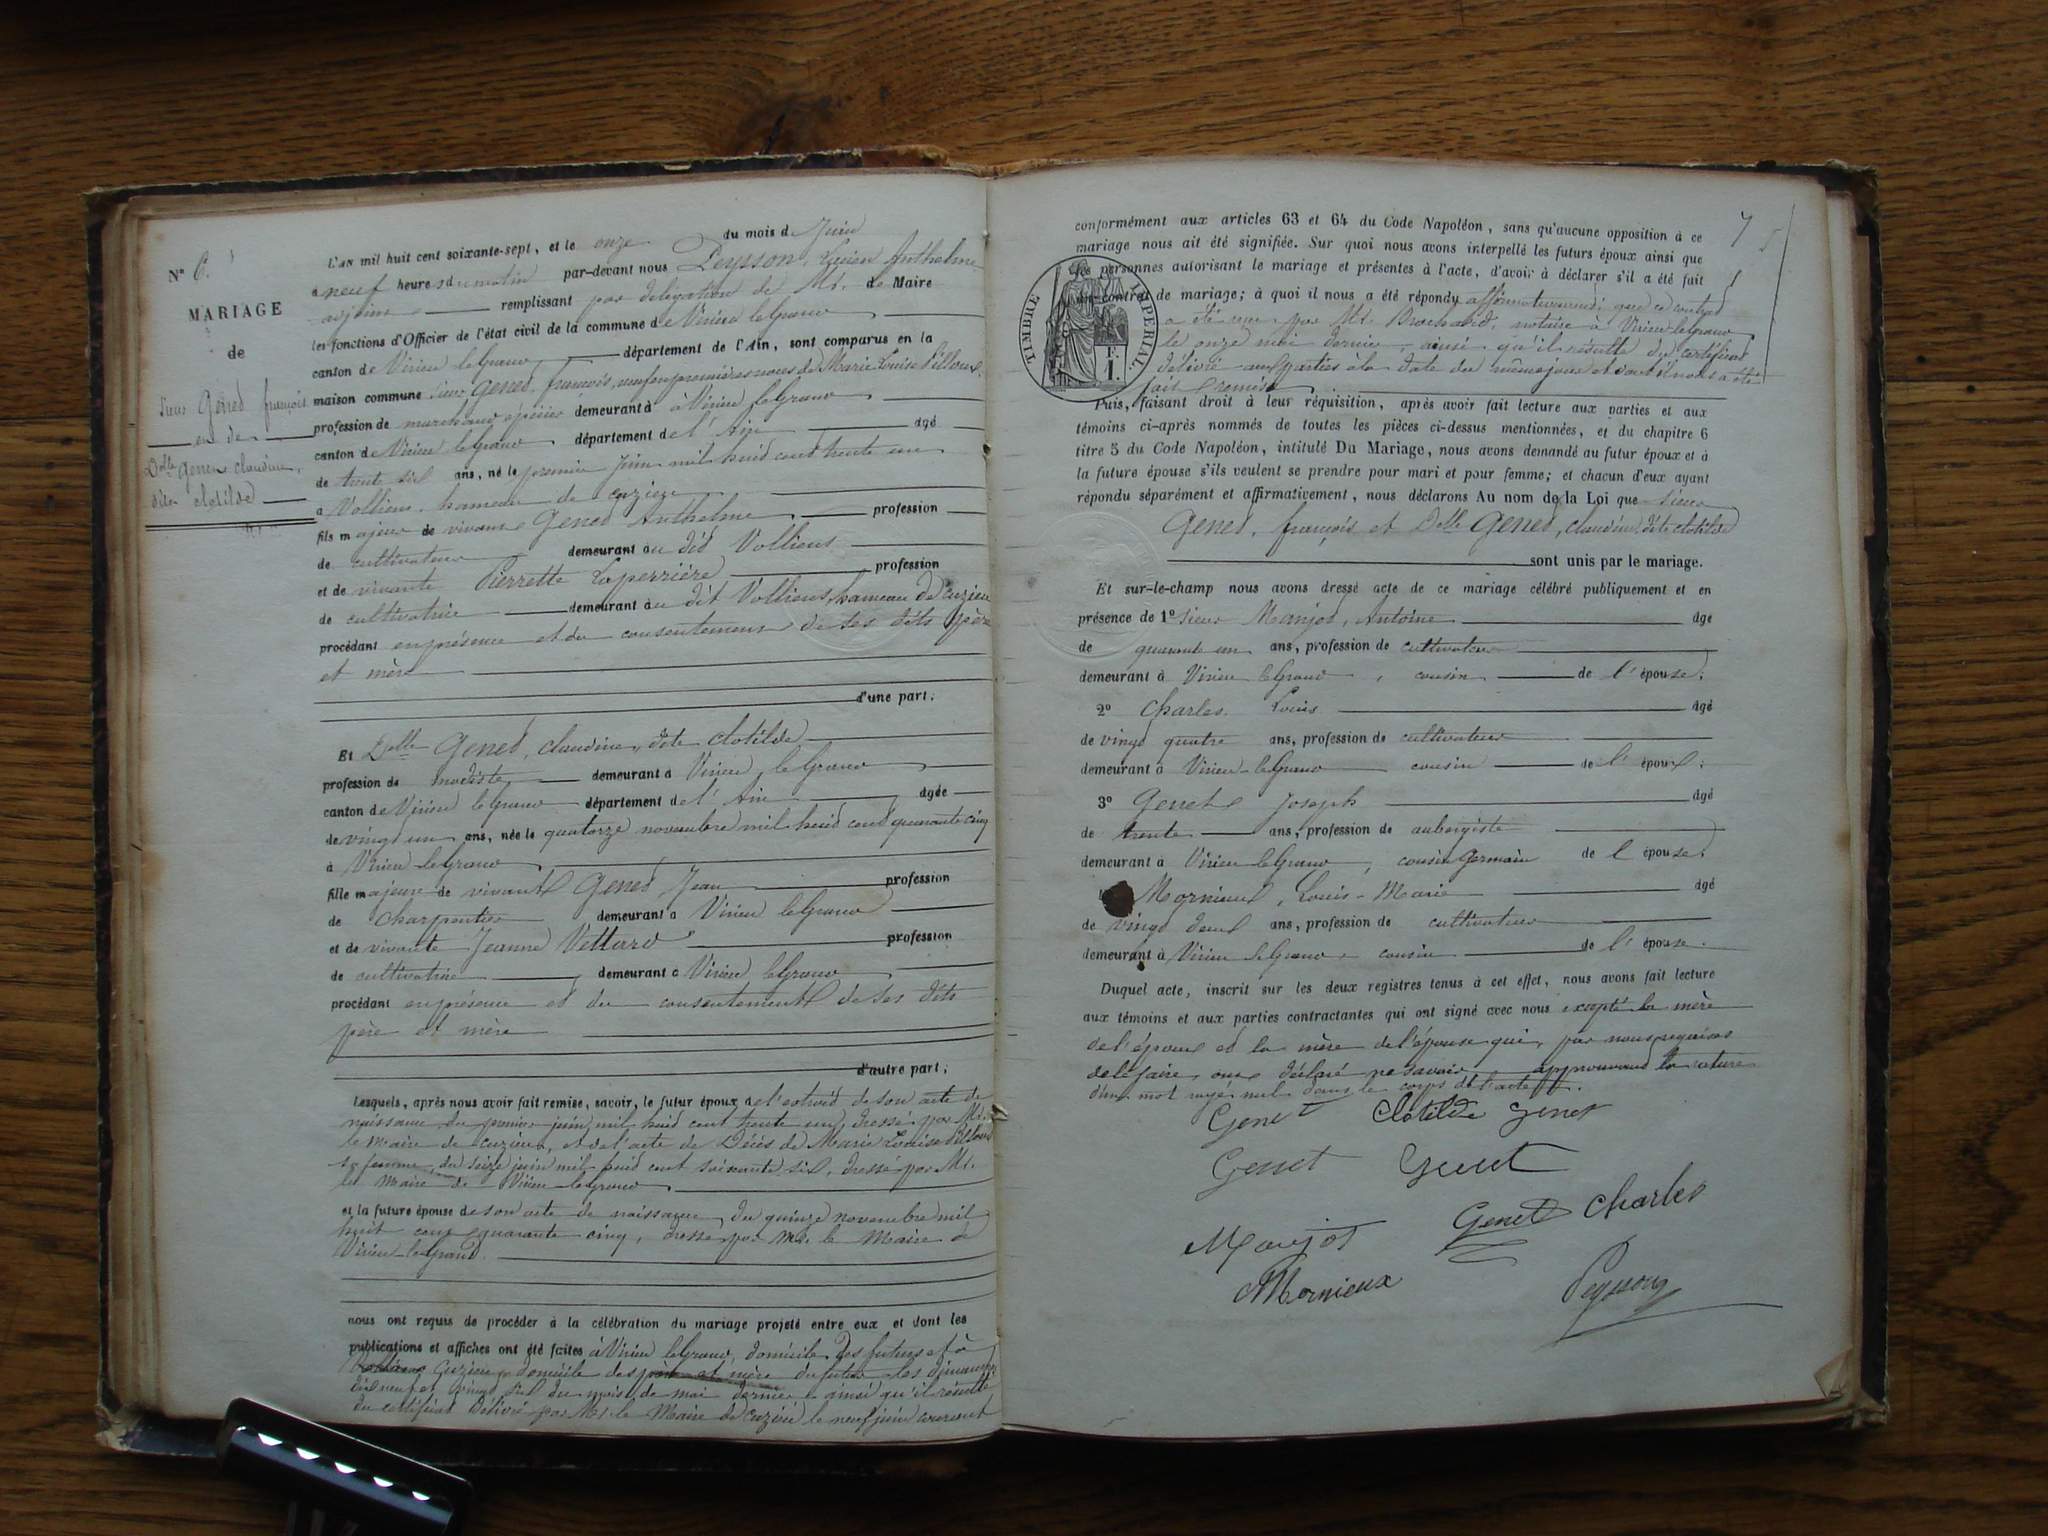 N° 6.
MARIAGE
de
Sieur Genet françois
et de
Delle Genet claudine,
dite clotilde
L'AN mil huit cent soixante-sept, et le onze du mois de Juin
à neuf heures du matin par-devant nous Peysson, Lucien Anthelme
adjoint remplissant par délégation de Mr. le Maire
les fonctions d'Officier de l'état civil de la commune de Virieu le Grand
canton de Virieu le Grand département de l'Ain, sont comparus en la
maison commune Sieur Genet, françois, veuf en premières noces de Marie Louise
profession de marchand épicier demeurant à à Virieu le Grand
canton de Virieu le Grand département de l'Ain âgé
de trente six ans, né le premier Juin mil huit cent trente un
à Vollien, hameau de cuzieu
fils majeur de vivant Genet Anthelme profession
de cultivateur demeurant au dit Volliens
et de vivante Pierrette Laperrière profession
de cultivatrice demeurant au dit Volliens, hameau de Cuzieu
procédant en présence et du consentement de ses dits père
et mère
d'une part;
Et Delle Genet, claudine, dite clotilde
profession de modiste demeurant à Virieu le Grand
canton de Virieu le Grand département de l'Ain âgée
de vingt un ans, née le quatorze novembre mil huit cent quarante cinq
à Virieu le Grand
fille majeure de vivant Genet Jean profession
de charpentier demeurant à Virieu le Grand
et de vivante Jeanne Vettard profession
de cultivatrice demeurant à Virieu le Grand
procédant en présence et du consentement de ses dits
père et mère
d'autre part;
Lesquels, après nous avoir fait remise, savoir, le futur époux de l'extrait de son acte de
naissance du premier juin mil huit cent trente un, dressé par Mr.
le maire de cuzieu, et de l'acte de Décès de Marie Louise
sa femme, du seize juin mil huit cent soixante six, dressé par Mr.
le Maire de Virieu le grand
et la future épouse de son acte de naissance, du quinze novembre mil
huit cent quarante cinq, dressé par Mr. le Maire de
Virieu-le-Grand.
nous ont requis de procéder à la célébration du mariage projeté entre eux et dont les
publications et affiches ont été faites à Virieu le Grand, domicile des futurs et à
Cuzieu domicile des père et mère du futur les dimanches
dix neuf et vingt six du mois de mai dernier ainsi qu'il résulte
du certificat délivré par Mr. le Maire de Cuzieu le neuf juin courant
7
conformément aux articles 63 et 64 du Code Napoléon, sans qu'aucune opposition à ce
mariage nous ait été signifiée. Sur quoi nous avons interpellé les futurs époux ainsi que
les personnes autorisant le mariage et présentes à l'acte, d'avoir à déclarer s'il a été fait
un contrat de mariage; à quoi il nous a été répondu affirmativement; que ce contrat
a été reçu par Mr. notaire à Virieu-le-grand
le onze mai dernier, ainsi qu'il résulte du certificat
délivré aux parties à la date du même jour et dont il nous a été
fait remise
TIMBRE IMPÉRIAL
F.
1.
Puis, faisant droit à leur réquisition, après avoir fait lecture aux parties et aux
témoins ci-après nommés de toutes les pièces ci-dessus mentionnées, et du chapitre 6
titre 5 du Code Napoléon, intitulé Du Mariage, nous avons demandé au futur époux et à
la future épouse s'ils veulent se prendre pour mari et pour femme; et chacun d'eux ayant
répondu séparément et affirmativement, nous déclarons Au nom de la Loi que Sieur
Genet, françois et Delle Genet, claudine, dite clotilde
sont unis par le mariage.
Et sur-le-champ nous avons dressé acte de ce mariage célébré publiquement et en
présence de 1° Sieur Manjot, Antoine âgé
de quarante un ans, profession de cultivateur
demeurant à Virieu le Grand, cousin de l'épouse;
2° Charles Louis âgé
de vingt quatre ans, profession de cultivateur
demeurant à Virieu-le-Grand cousin de l'époux;
3° Genet Joseph âgé
de trente ans, profession de aubergiste
demeurant à Virieu le Grand, cousin Germain de l'épouse;
Mornieux, Louis-Marie âgé
de vingt deux ans, profession de cultivateur
demeurant à Virieu le Grand, cousin de l'épouse.
Duquel acte, inscrit sur les deux registres tenus à cet effet, nous avons fait lecture
aux témoins et aux parties contractantes qui ont signé avec nous excepté la mère
de l'époux et la mère de l'épouse qui, par nous requises
de le faire, ont déclaré ne savoir, approuvant la rature
d'un mot rayé nul dans le corps de l'acte.
Genet Clotilde Genet
Genet Genet
Manjot Genet Charles
Mornieux Peysson